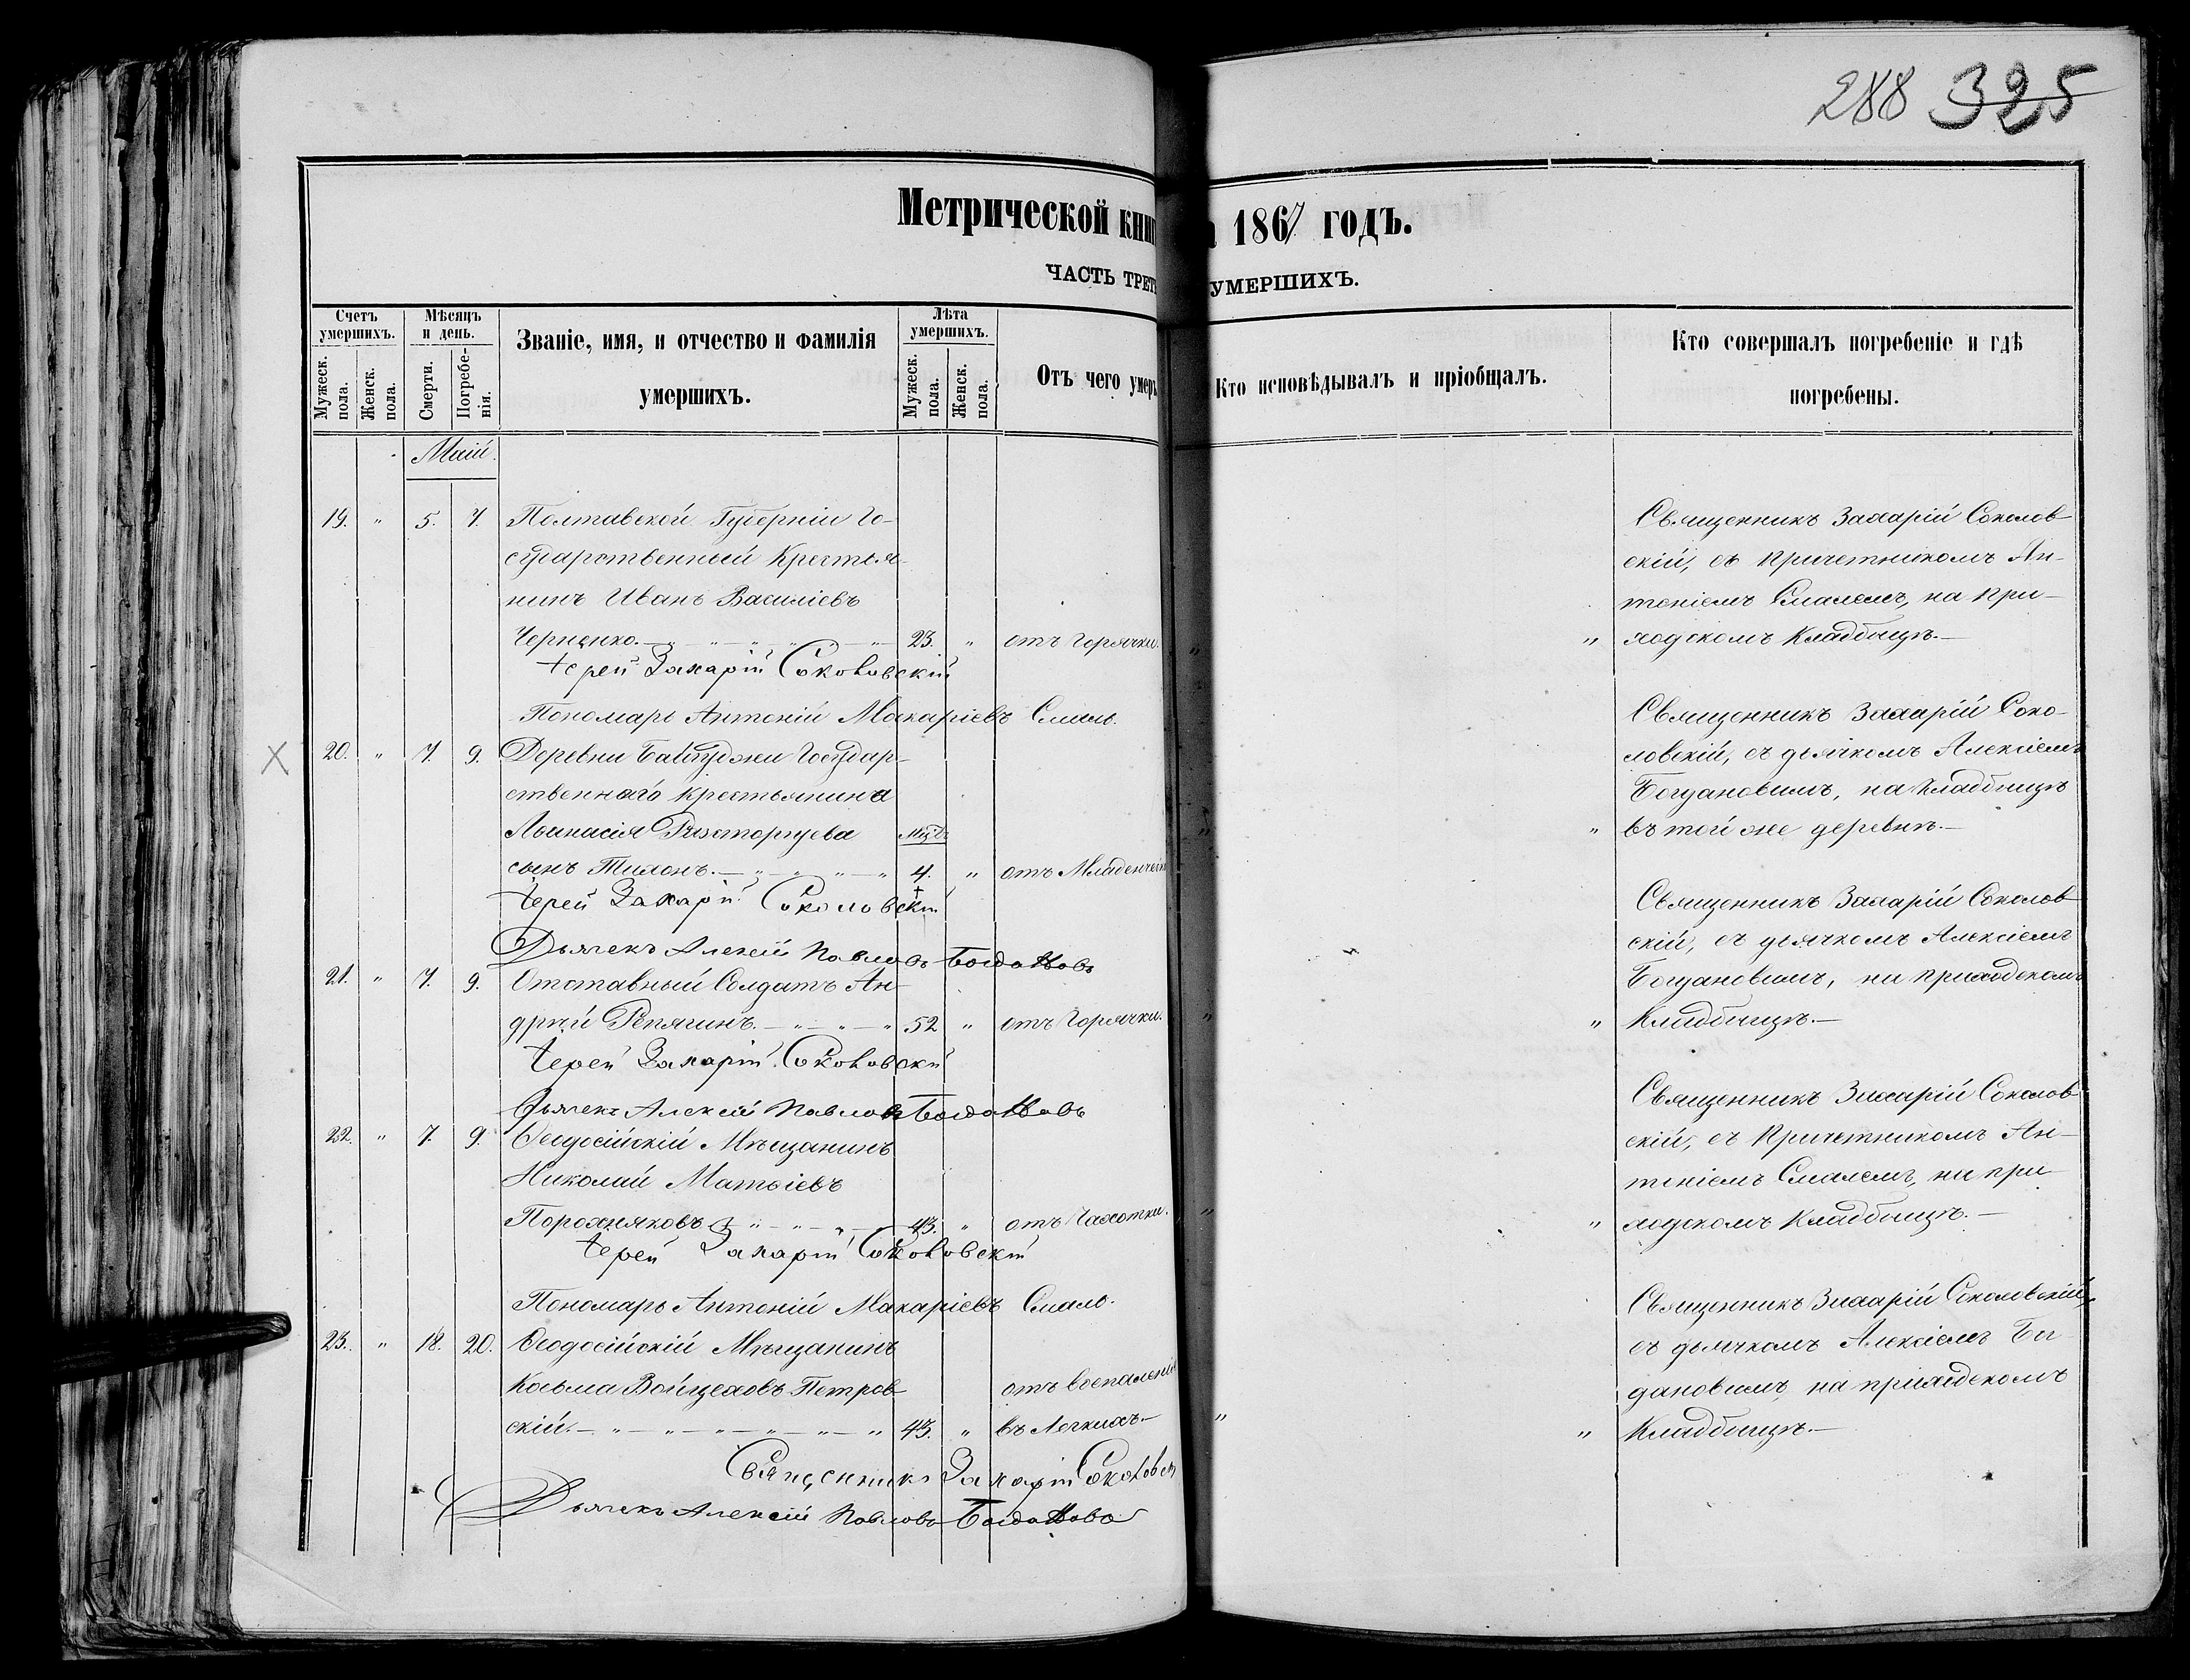 288 325
Метрической кни 1867 годъ.
ЧАСТЬ ТРЕТ УМЕРШИХЪ.
Счетъ умершихъ.
Мужеск. пола.
Женск. пола.
Мѣсяцъ и день.
Смерти.
Погребенія.
Званіе, имя, и отчество и фамилія
умершихъ.
Лѣта умершихъ.
Мужеск. пола.
Женск. пола.
Отъ чего умер
Кто исповѣдывалъ и пріобщалъ.
Кто совершалъ погребеніе и гдѣ
погребены.
Маій.
19. " 5. 7. Полтавской Губерніи Го-
сударственный Крестья-
нинъ Иванъ Василіевъ
Черненко. 23. " отъ Горячки. "
Іерей Захарій Соколовскій
Пономарь Антоній Макаріевъ Смаль.
Священникъ Захарій Соколов-
скій, съ причетникомъ Ан-
тоніемъ Смалемъ, на при-
" ходскомъ Кладбищѣ.
20. " 7. 9. Деревни Государ-
ственнаго крестьянина
Аѳанасія Расторгуева Мѣц.
сынъ Тихонъ. 4. " отъ Младенческ
Іерей Захарій Соколовскій
Дьячекъ Алексѣй Павловъ Богдановъ
Священникъ Захарій Соко-
ловскій, съ дьячкомъ Алексіемъ
Богдановымъ, на кладбищѣ
" въ той же деревнѣ.
21. " 7. 9. Отставный Солдатъ Ан-
дрей Репягинъ. 52 " отъ Горячки. "
Іерей Захарій Соколовскій
Дьячекъ Алексѣй Павловъ Богдановъ
Священникъ Захарій Соколов-
скій, съ дьячкомъ Алексіемъ
Богдановымъ, на приходскомъ
" Кладбищѣ.
22. " 7. 9. Ѳеодосійскій Мѣщанинъ
Николай Матвіевъ
Порохняковъ 43. " отъ Чахотки. "
Іерей Захарій Соколовскій
Пономарь Антоній Макаріевъ Смаль.
Священникъ Захарій Соколов-
скій, съ Причетникомъ Ан-
тоніемъ Смалемъ, на при-
" ходскомъ Кладбищѣ.
23. " 18. 20. Ѳеодосійскій Мѣщанинъ
Косьма Войцеховъ Петров-
скій. 43. " отъ воспаленія
въ Легкихъ. "
Священникъ Захарій Соколовск
Дьячекъ Алексѣй Павловъ Богдановъ
Священникъ Захарій Соколовскій,
съ дьячкомъ Алексіемъ Бог-
дановымъ, на приходскомъ
" Кладбищѣ.